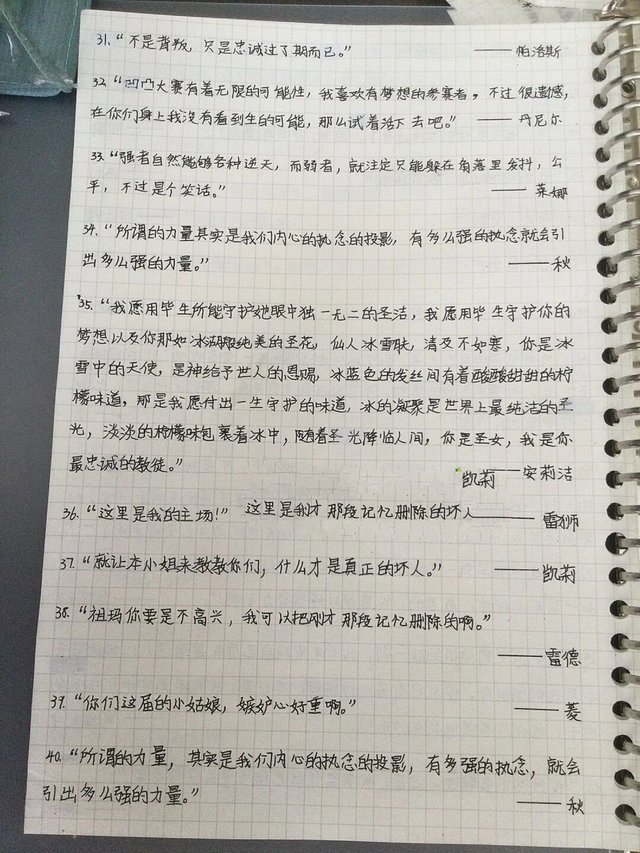 31、“不是背叛，只是忠诚过了期而已。” ——帕洛斯
32、“凹凸大赛有着无限的可能性，我喜欢有梦想的参赛者，不过很遗憾，
在你们身上我没有看到生的可能，那么试着活下去吧。” ——丹尼尔
33、“强者自然能够各种逆天，而弱者，就注定只能躲在角落里发抖，公
平，不过是个笑话。” ——莱娜
34、“所谓的力量其实是我们内心的执念的投影，有多么强的执念就会引
出多么强的力量。” ——秋
35、“我愿用毕生所能守护她眼中独一无二的圣洁，我愿用毕生守护你的
梦想以及你那如冰湖般纯美的圣花，仙人冰雪肤，清及不如寒，你是冰
雪中的天使，是神给予世人的恩赐，冰蓝色的发丝间有着酸酸甜甜的柠
檬味道，那是我愿付出一生守护的味道，冰的凝聚是世界上最纯洁的圣
光，淡淡的柠檬味包裹着冰中，随着圣光降临人间，你是圣女，我是你
最忠诚的教徒。” 凯莉——安莉洁
36、“这里是我的主场!” 这里是我才那段记忆删除的坏人——雷狮
37、“就让本小姐来教教你们，什么才是真正的坏人。” ——凯莉
38、“祖玛你要是不高兴，我可以把刚才那段记忆删除的啊。”
——雷德
39、“你们这届的小姑娘，嫉妒心好重啊。” ——菱
40、“所谓的力量，其实是我们内心的执念的投影，有多强的执念，就会
引出多么强的力量。” ——秋